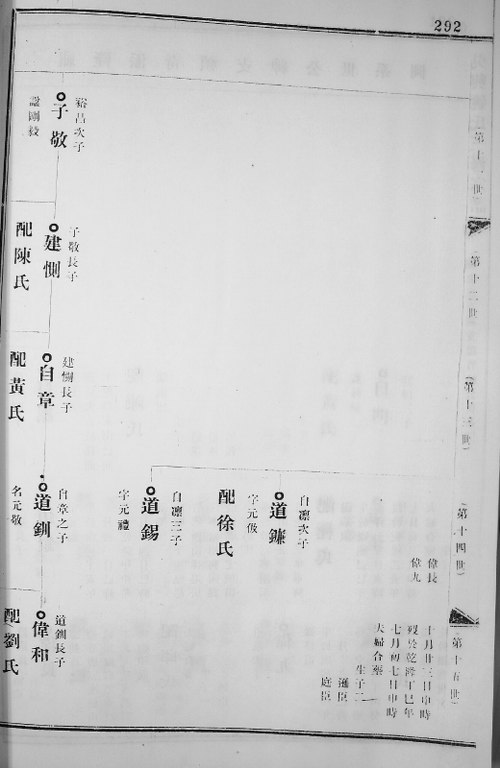 292
(第十一世)
(第十二世)
(第十三世)
(第十四世)
(第十五世)
偉長
偉九
十月廿三日申時
歿於乾隆丁巳年
七月初七日申時
夫婦合塟
生子二
庭臣
自凛次子
道鐮
字元伋
配徐氏
自凛三子
道錫
字元禮
裕昌次子
子敬
諡剛毅
子敬長子
建惻
配陳氏
建惻長子
自章
配黃氏
自章之子
道釧
名元敬
道釧長子
偉和
配劉氏